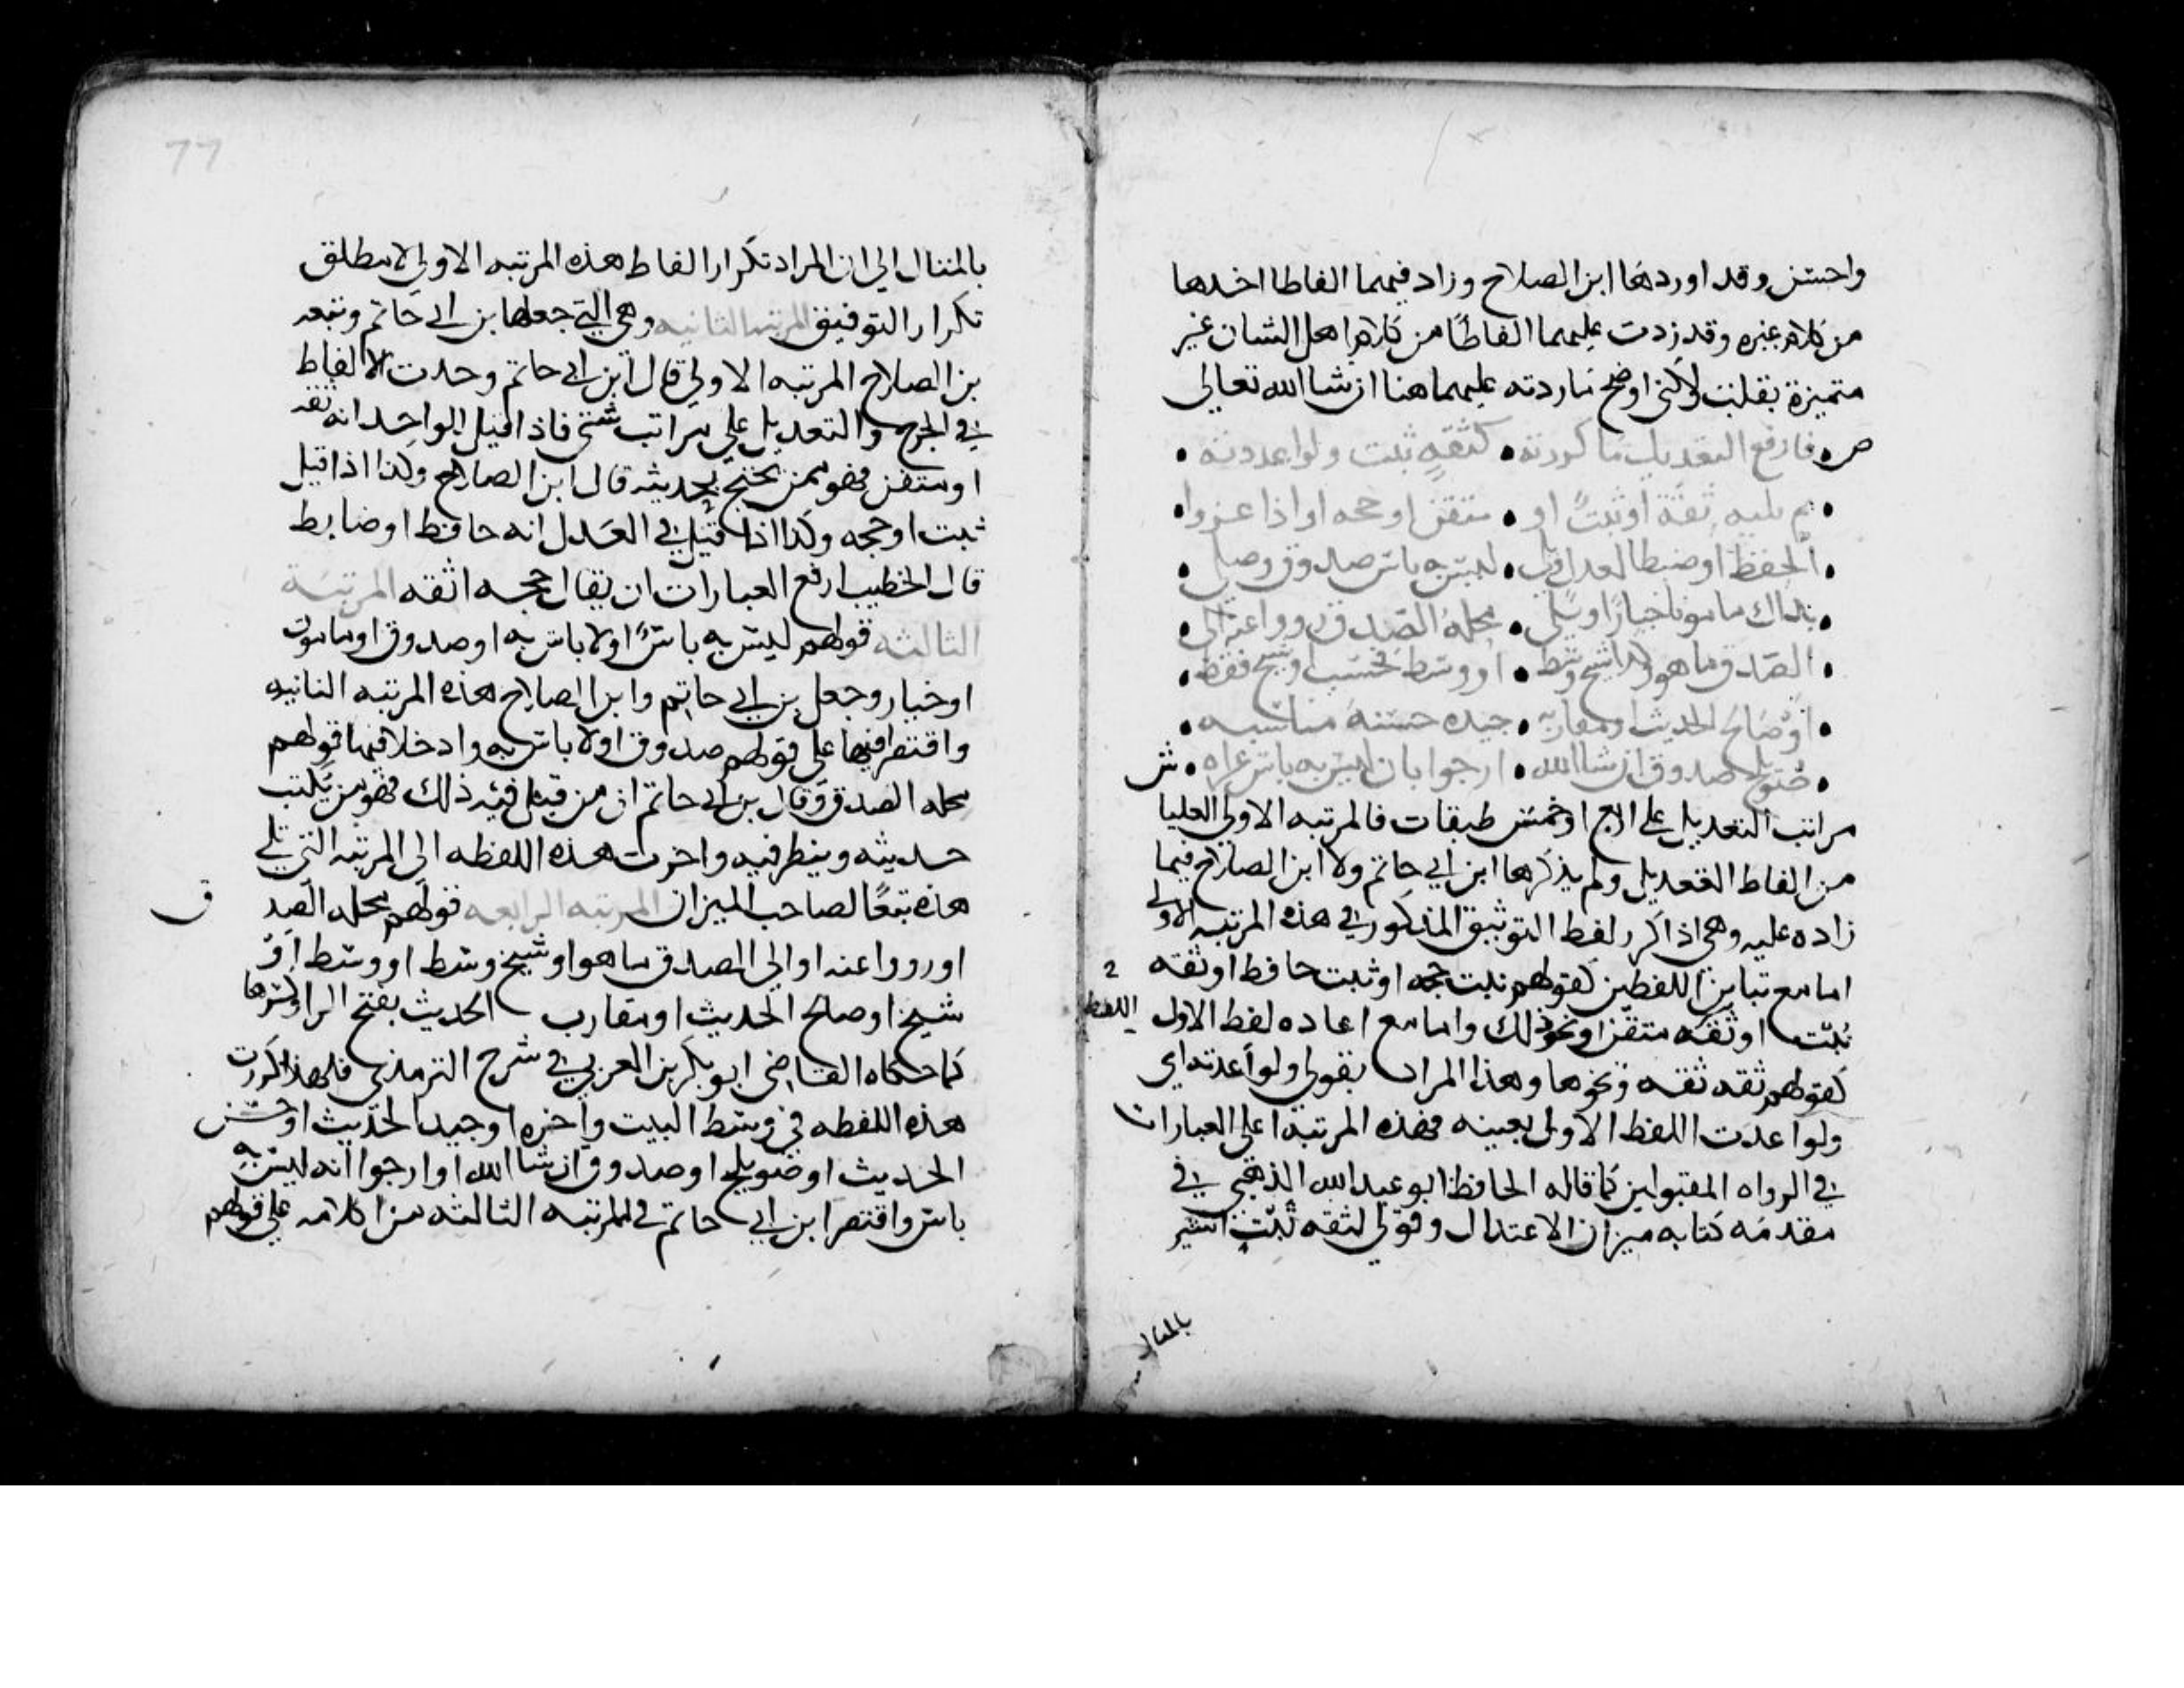 واحسن وقد اوردها ابن الصلاح وزاد فيهما الفاظا اخذها
من كلام غيره وقد زدت عليهما الفاظًا من كلام اهل الشان غير
متميزة بقلت ولاكني اوضح ما زدته عليهما هنا ان شا الله تعالى
ص فارفع التعديل ما كررته • كثقةٍ ثبت ولو اعددته •
• ثم يليه ثقة او ثبتً او • متقن او حجه او اذا عزوا •
• الحفظ او ضبطا لعدل ويلي • ليس به باس صدوق وصل •
• بذاك مامونا خيارًا وتلي • محله الصدق رووا عنه الى •
• الصدق ما هو وكذا شيخ وسط • او وسط فحسب او شيخ فقط •
• او صالح الحديث او مقاربه • جيده حسنه مقاربه •
• صويلح صدوق ان شا الله • ارجوا بان ليس به باس عراه • ش
مراتب التعديل على اربع او خمس طبقات فالمرتبه الاولي العليا
من الفاظ التعديل ولم يذكرها ابن ابي حاتم ولا ابن الصلاح فيما
زاده عليه وهي اذا كرر لفظ التوثيق المذكور في هذه المرتبه الاولى
اما مع تباين اللفظين كقولهم ثبت حجه او ثبت حافظ او ثقه
ثبت او ثقه متقن او نحو ذلك واما مع اعاده لفظ الاول اللفظ
كقولهم ثقه ثقه ونحوها وهذا المراد بقولي ولو اعدته اي
ولو اعدت اللفظ الاول بعينه فهذه المرتبة اعلى العبارات
في الرواه المقبولين كما قاله الحافظ ابو عبد الله الذهبي في
مقدمه كتابه ميزان الاعتدال وقولي كثقه ثبت اشير
بالمثال
77
بالمثال الي ان المراد تكرار الفاظ هذه المرتبه الاولي لا مطلق
تكرار التوفيق المرتبه الثانيه وهي التي جعلها بن ابي حاتم وتبعه
بن الصلاح المرتبه الاولي قال ابن ابي حاتم وجدت الالفاظ
في الجرح والتعديل على مراتب شتى فاذا قيل للواحد انه ثقه
او متقن فهو ممن يحتج بحديثه قال ابن الصلاح وكذا اذا قيل
ثبت او حجه وكذا اذا قيل في العدل انه حافظ او ضابط
قال الخطيب ارفع العبارات ان يقال حجه او ثقه المرتبة
الثالثه قولهم ليس به باسً او لا باس به او صدوق او مامون
او خيار وجعل بن ابي حاتم وابن الصلاح هذه المرتبه الثانيه
واقتصرا فيها علي قولهم صدوق او لا باس به وادخلا فيها قولهم
محله الصدق وقال بن ابي حاتم ان من قيل فيه ذلك فهو من يكتب
حديثه وينظر فيه واخرت هذه اللفظه الى المرتبه التي تلي
هذه تبعًا لصاحب الميزان المرتبه الرابعه قولهم محله الصد ق
او رووا عنه او الي الصدق ما هو او شيخ وسط او وسط او
شيخ او صالح الحديث او مقارب الحديث بفتح الرا وكسرها
كما حكاه القاضي ابو بكر بن العربي في شرح الترمذي فلهذا كررت
هذه اللفظه في وسط البيت واخره او جيد الحديث او حسن
الحديث او صويلح او صدوق ان شا الله او ارجوا انه ليس به
باس واقتصر ابن ابي حاتم في المرتبه الثالثه من كلامه علي قولهم